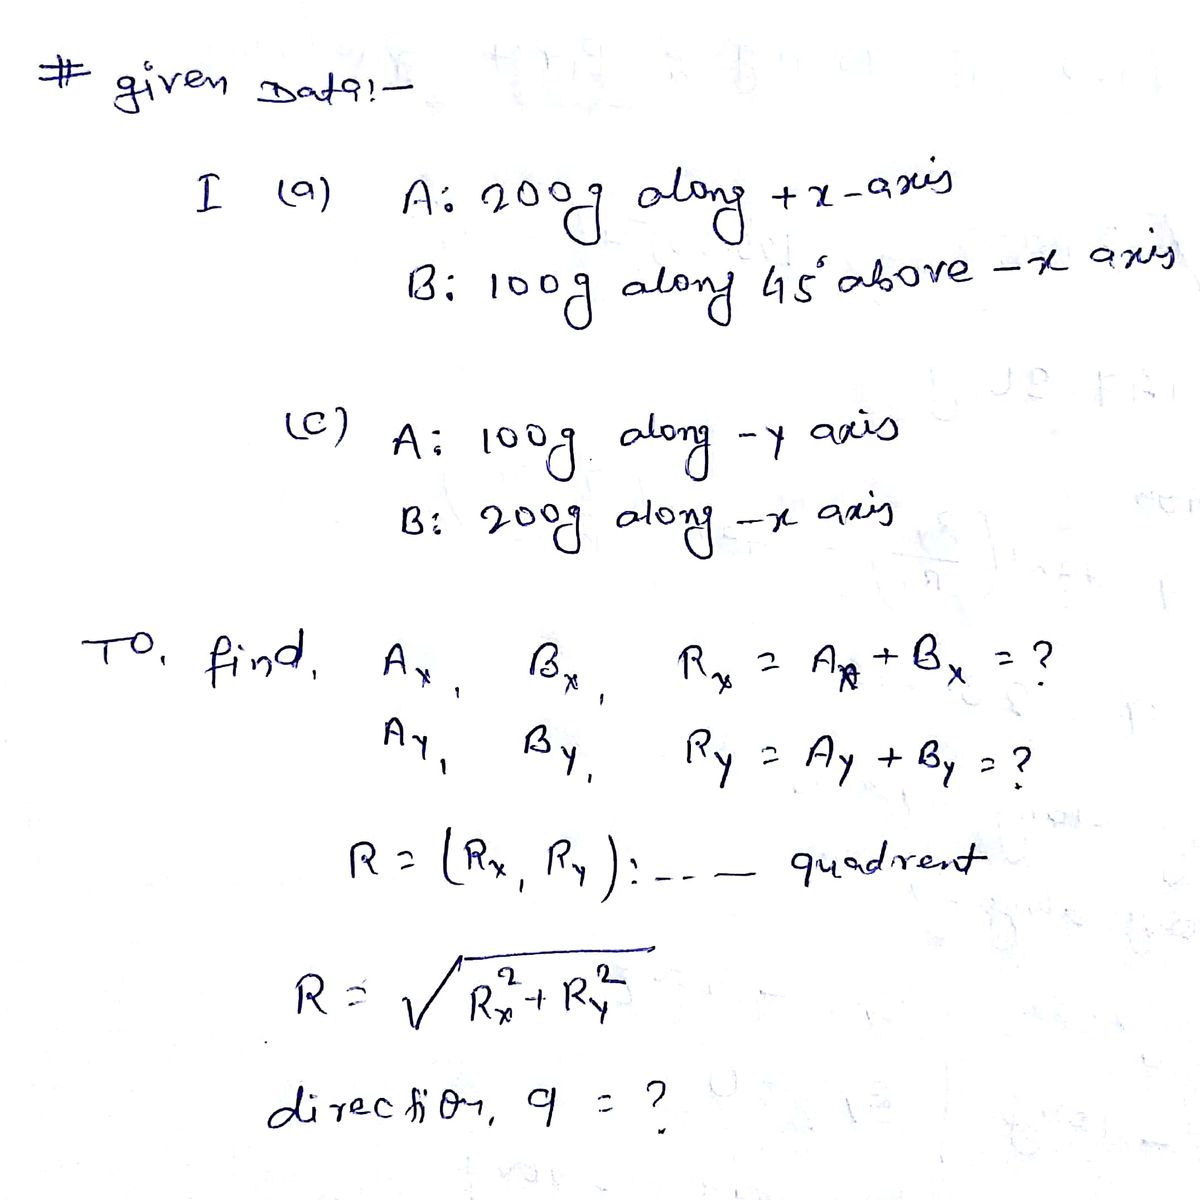 # given Data:-
I (a) A: 200g along +x-axis
B: 100g along 45° above -x axis
(C) A: 100g along -y axis
B: 200g along -x axis
TO, find, Ax, Bx, Rx = Ax + Bx = ?
Ay, By, Ry = Ay + By = ?
R = (Rx, Ry): --- quadrent
R = √Rx² + Ry²
direction, q = ?